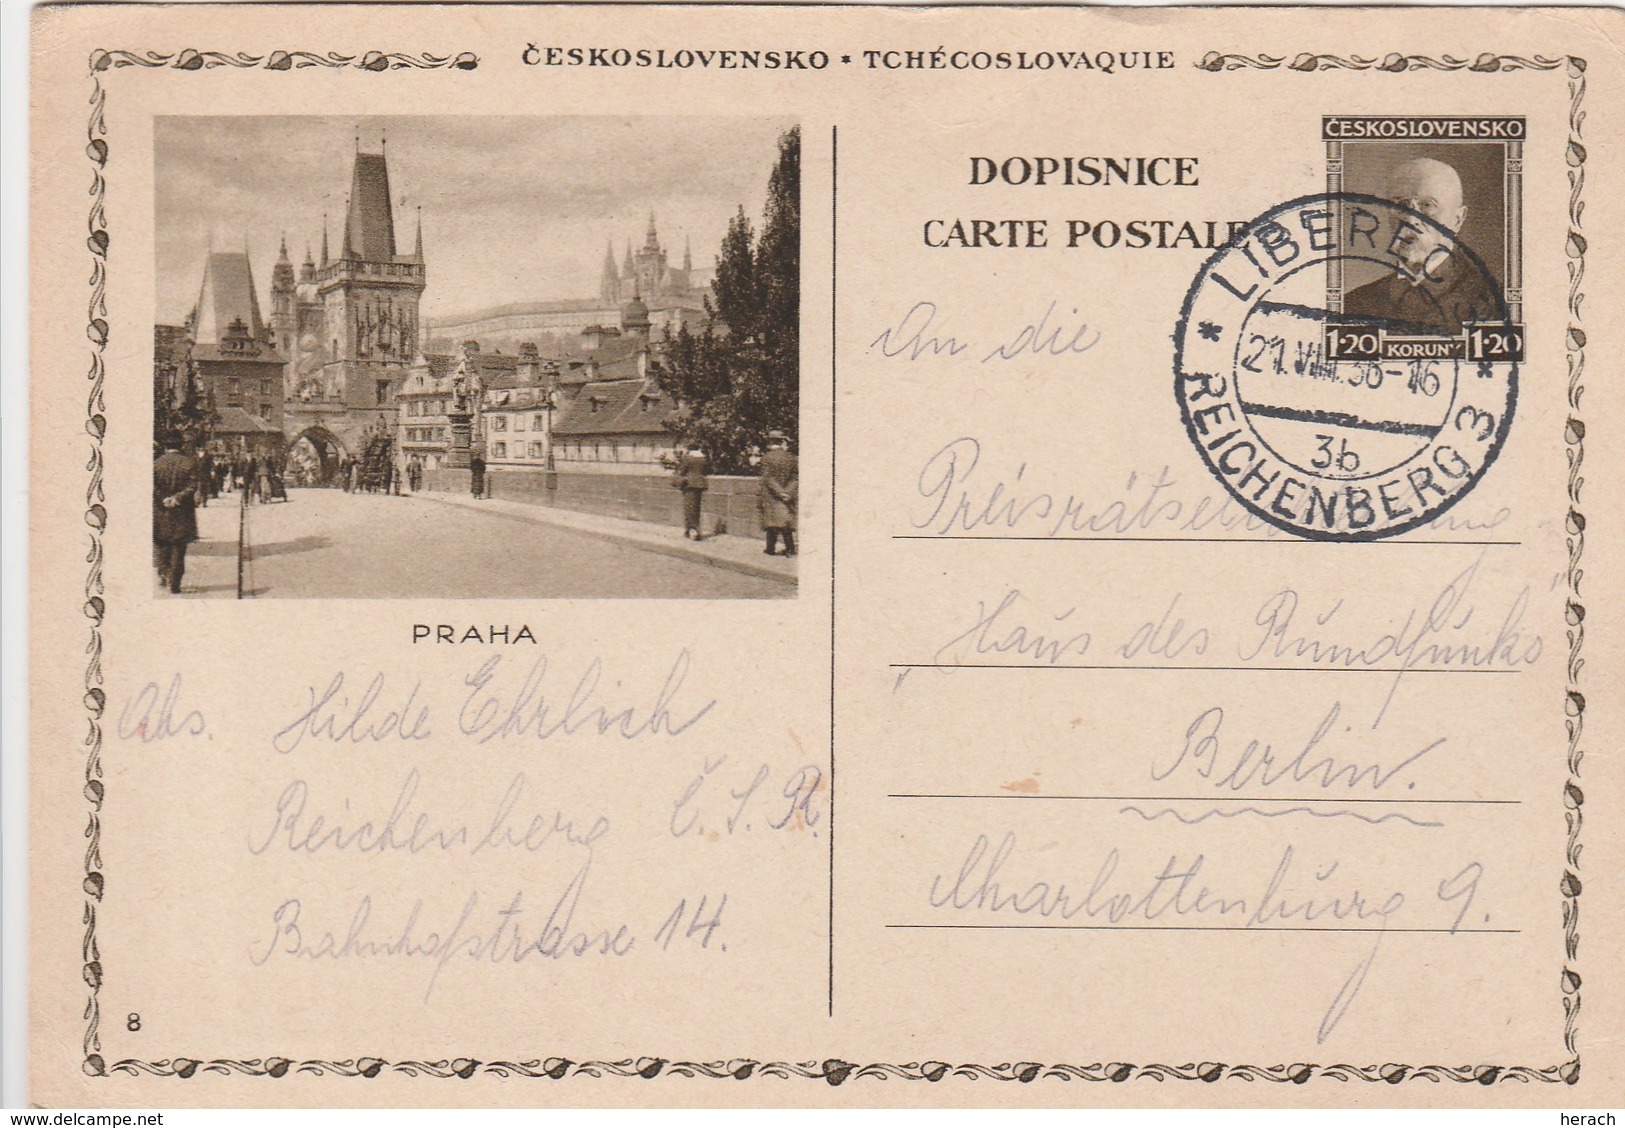 ČESKOSLOVENSKO * TCHÉCOSLOVAQUIE
DOPISNICE
CARTE POSTALE
ČESKOSLOVENSKO
1·20 KORUNY 1·20
* LIBEREC 3 *
21.VIII.36-16
3b
REICHENBERG 3
An die
Preisrätsel
„Haus des Rundfunks"
Berlin.
Charlottenburg 9.
PRAHA
Abs. Hilde Ehrlich
Reichenberg Č.S.R.
Bahnhofstrasse 14.
8
delcampe.net
herach